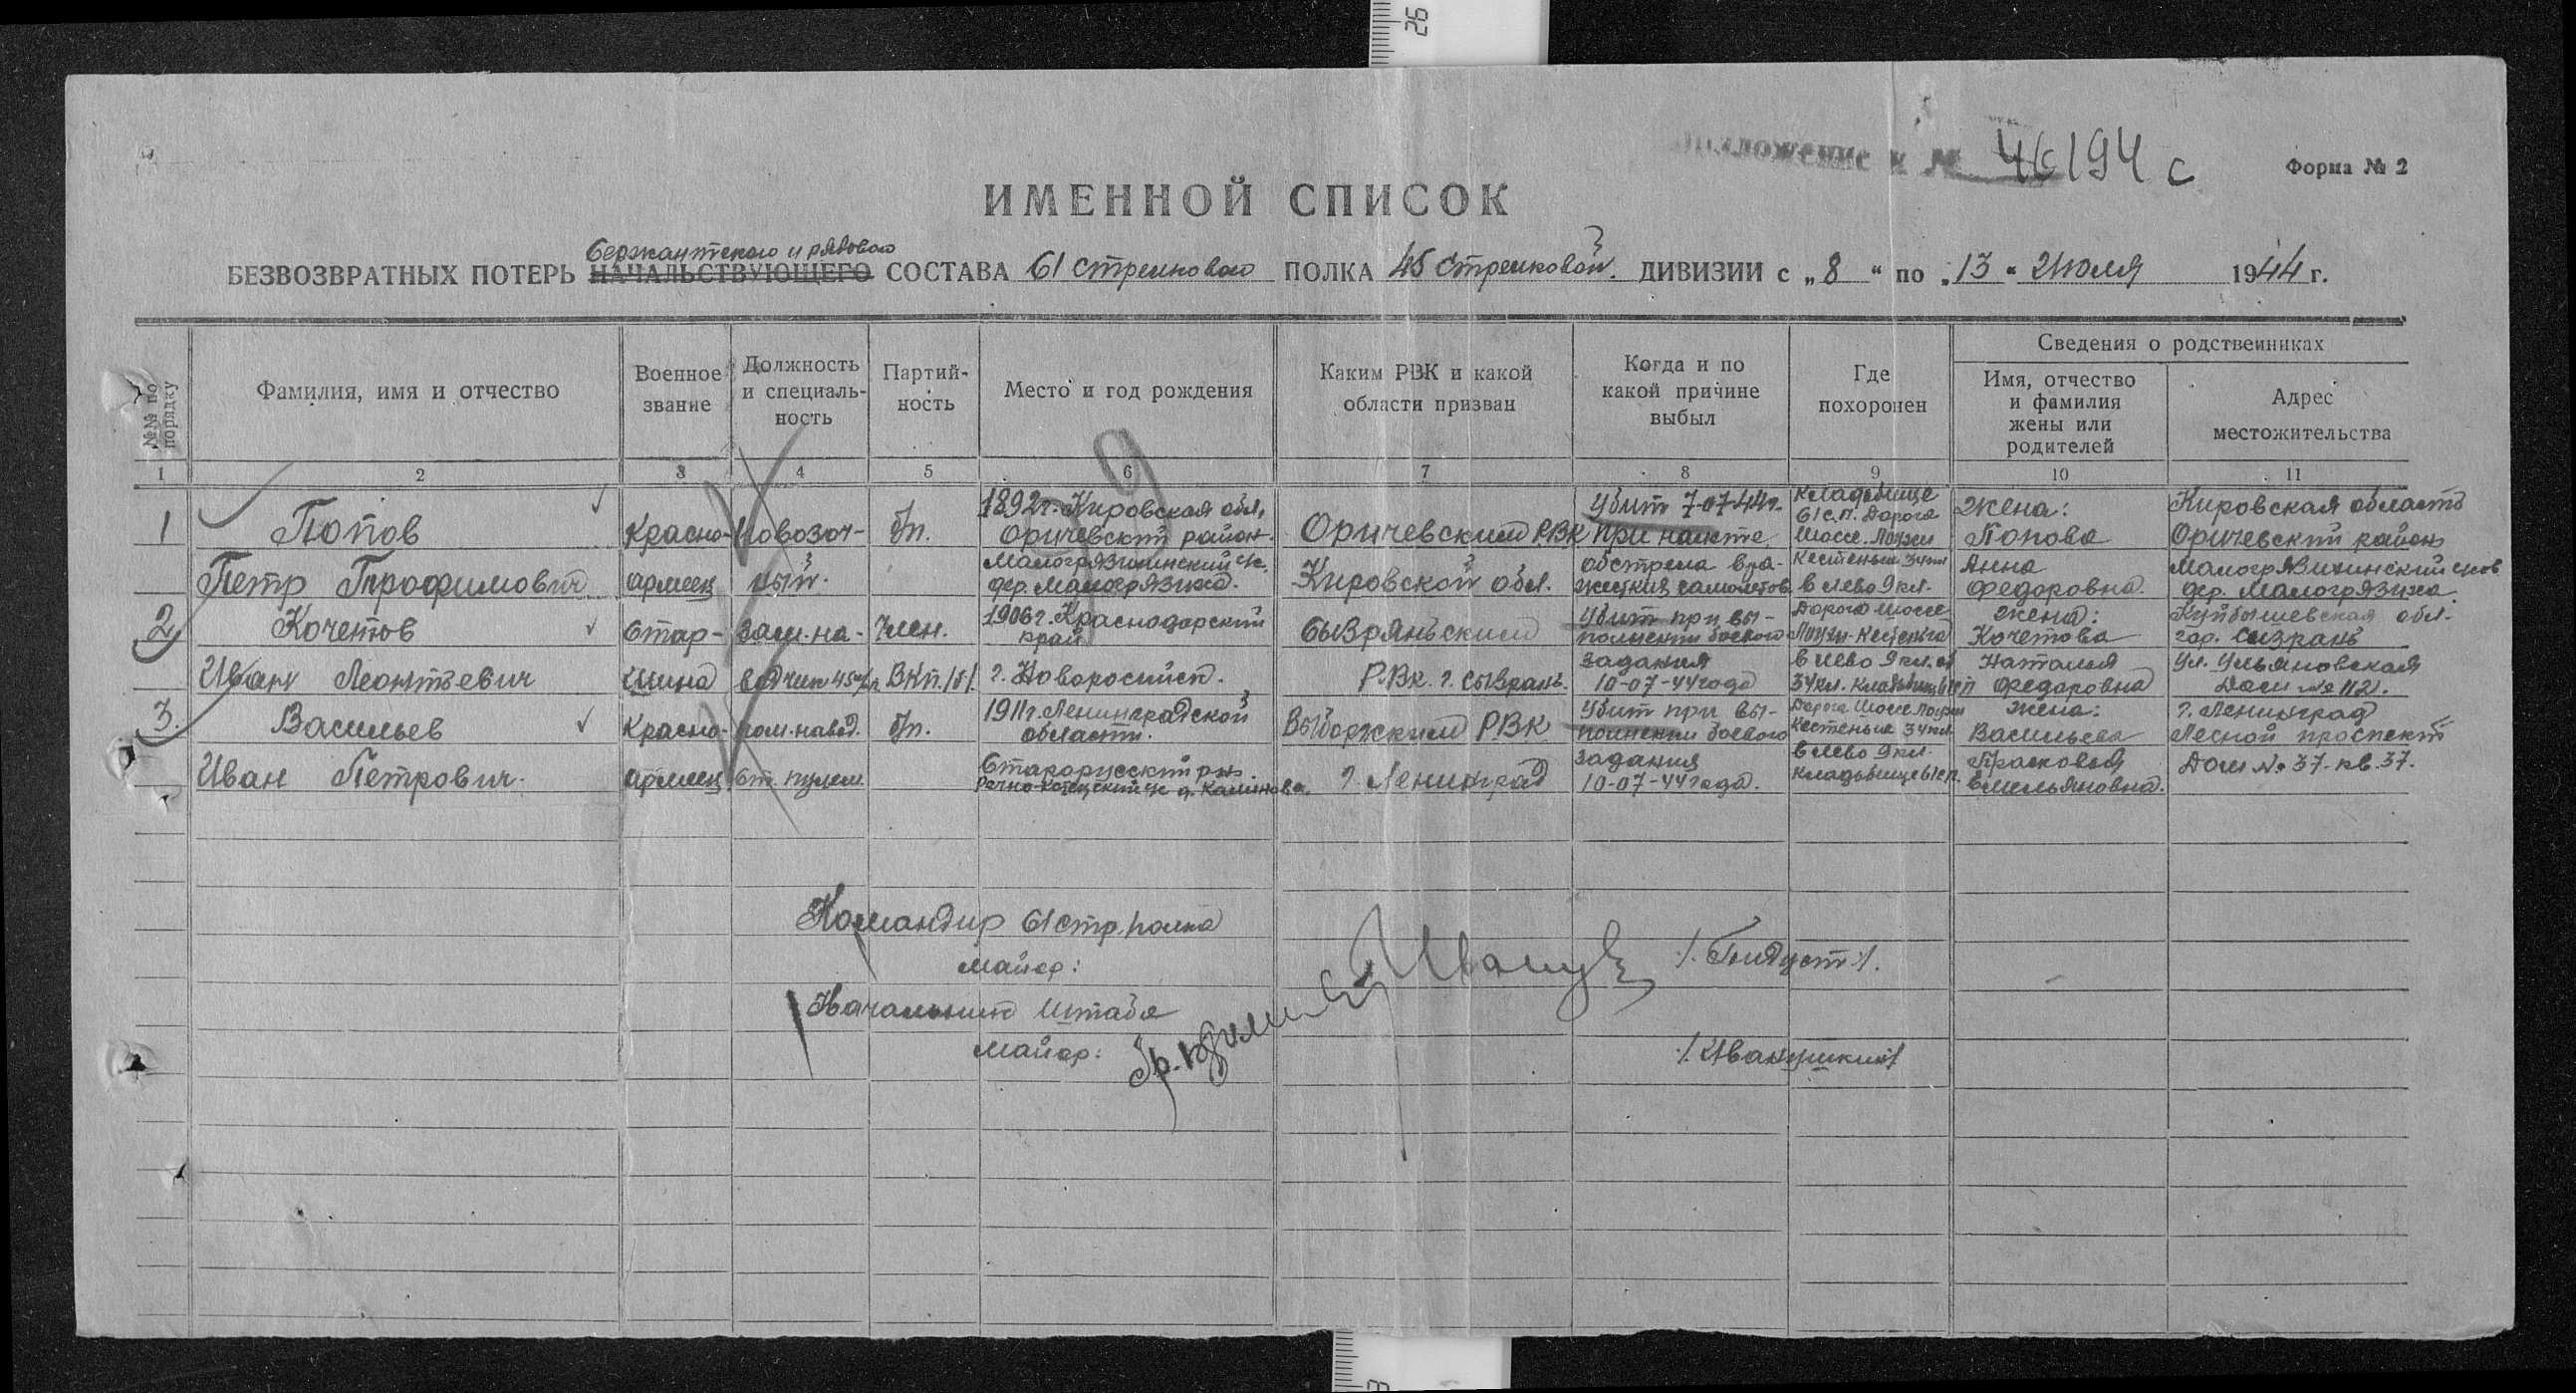 26
Приложение к № 46194 с
Форма № 2
ИМЕННОЙ СПИСОК
Сержантского и рядового
БЕЗВОЗВРАТНЫХ ПОТЕРЬ НАЧАЛЬСТВУЮЩЕГО СОСТАВА 61 стрелкового ПОЛКА 45 стрелковой. ДИВИЗИИ с „8“ по „13“ Июля 1944 г.
№№ по порядку
Фамилия, имя и отчество
Военное звание
Должность и специальность
Партийность
Место и год рождения
Каким РВК и какой области призван
Когда и по какой причине выбыл
Где похоронен
Сведения о родственниках
Имя, отчество и фамилия жены или родителей
Адрес местожительства
1 2 3 4 5 6 7 8 9 10 11
1
Попов
Петр Трофимович
Красно-
армеец
повозоч-
ный.
б/п.
1892г. Кировская обл,
Оричевский район.
Малогрязихинский с/с.
дер. Малогрязиха.
Оричевским РВК
Кировской обл.
Убит 7-07-44г.
при налете,
обстрела вра-
жеских самолетов
кладбище
61 с.п. Дорога
Шоссе. Лоухи
Кестеньга 34 кл
в лево 9 кл.
Жена:
Попова
Анна
Федоровна.
Кировская область
Оричевский район
Малогрязихинский с/сов
дер. Малогрязиха.
2
Кочетов
Иван Леонтьевич
Стар-
шина
Зам. на-
Член.
ВКП/б/.
1906г. Краснодарский
край
г. Новоросийск.
Сызраньским
РВК. г. Сызрань.
Убит при вы-
полнении боевого
задания
10-07-44 года
Дорога Шоссе
Лоухи-Кестеньга
в лево 9 кл. от
34 кл. кладбище 61 сп
Жена:
Кочетова
Наталия
Федоровна
Куйбышевская обл.
гор. Сызрань
Ул. Ульяновская
Дом № 112.
3.
Васильев
Иван Петрович.
Красно-
армеец
пом. навод.
Ст. пулем.
б/п.
1911г. Ленинградской
области.
Старорусский р-н.
д. Калинова.
Выборжским РВК
г. Ленинград
Убит при вы-
полнении боевого
задания
10-07-44 года.
Дорога Шоссе Лоухи
Кестеньга 34 кл.
в лево 9 кл.
кладбище 61 сп.
Жена:
Васильева
Прасковья
Емельяновна.
г. Ленинград
Лесной проспект
Дом № 37. кв. 37.
Командир 61 стр. полка
майор:
/. Гиндуст /.
Начальник штаба
майор:
/. Иванушкин/